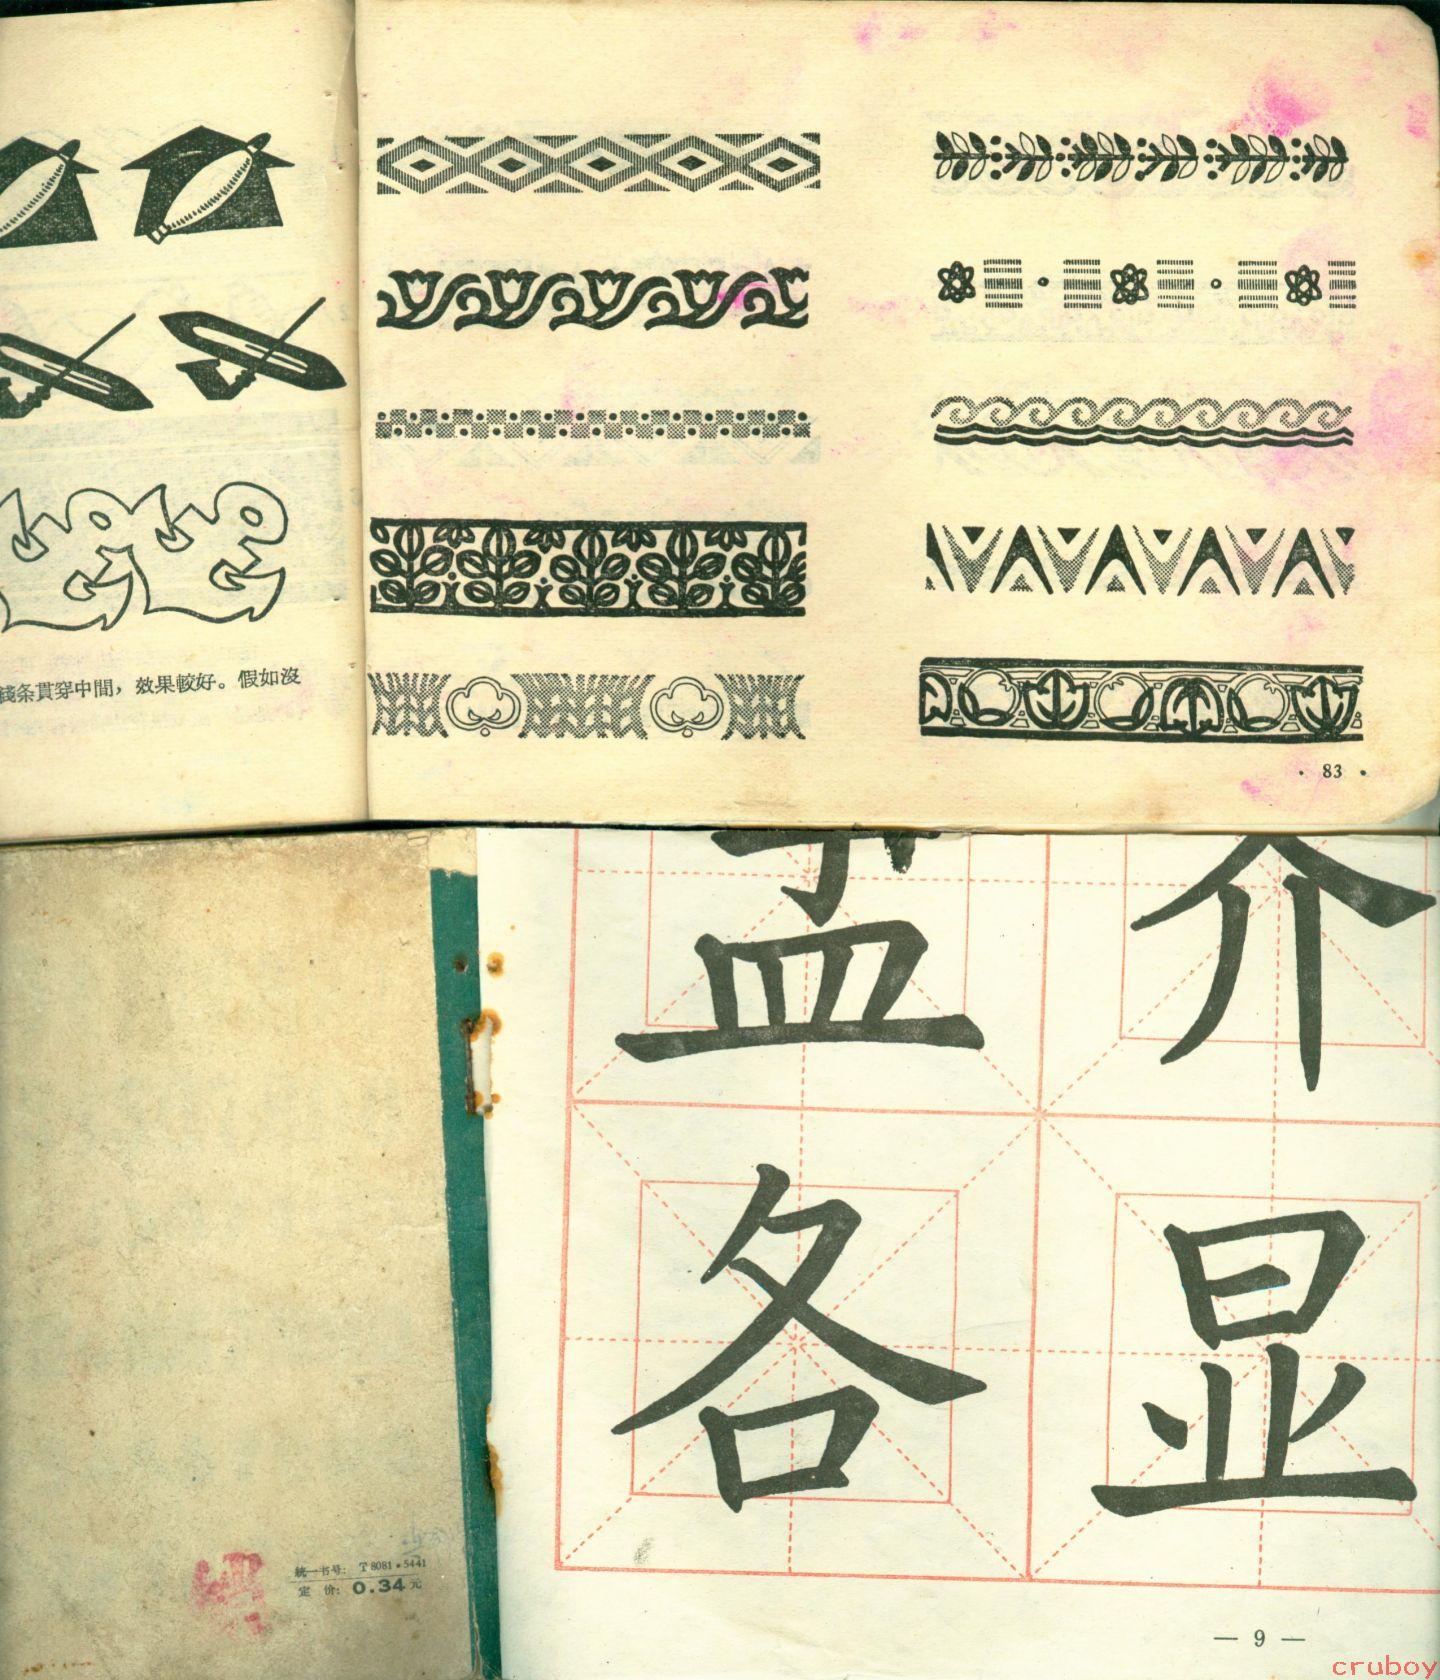 綫条貫穿中間，效果較好。假如沒
· 83 ·
孟 介
各 显
統一书号：T 8081·5441
定 价：0.34元
— 9 —
cruboy